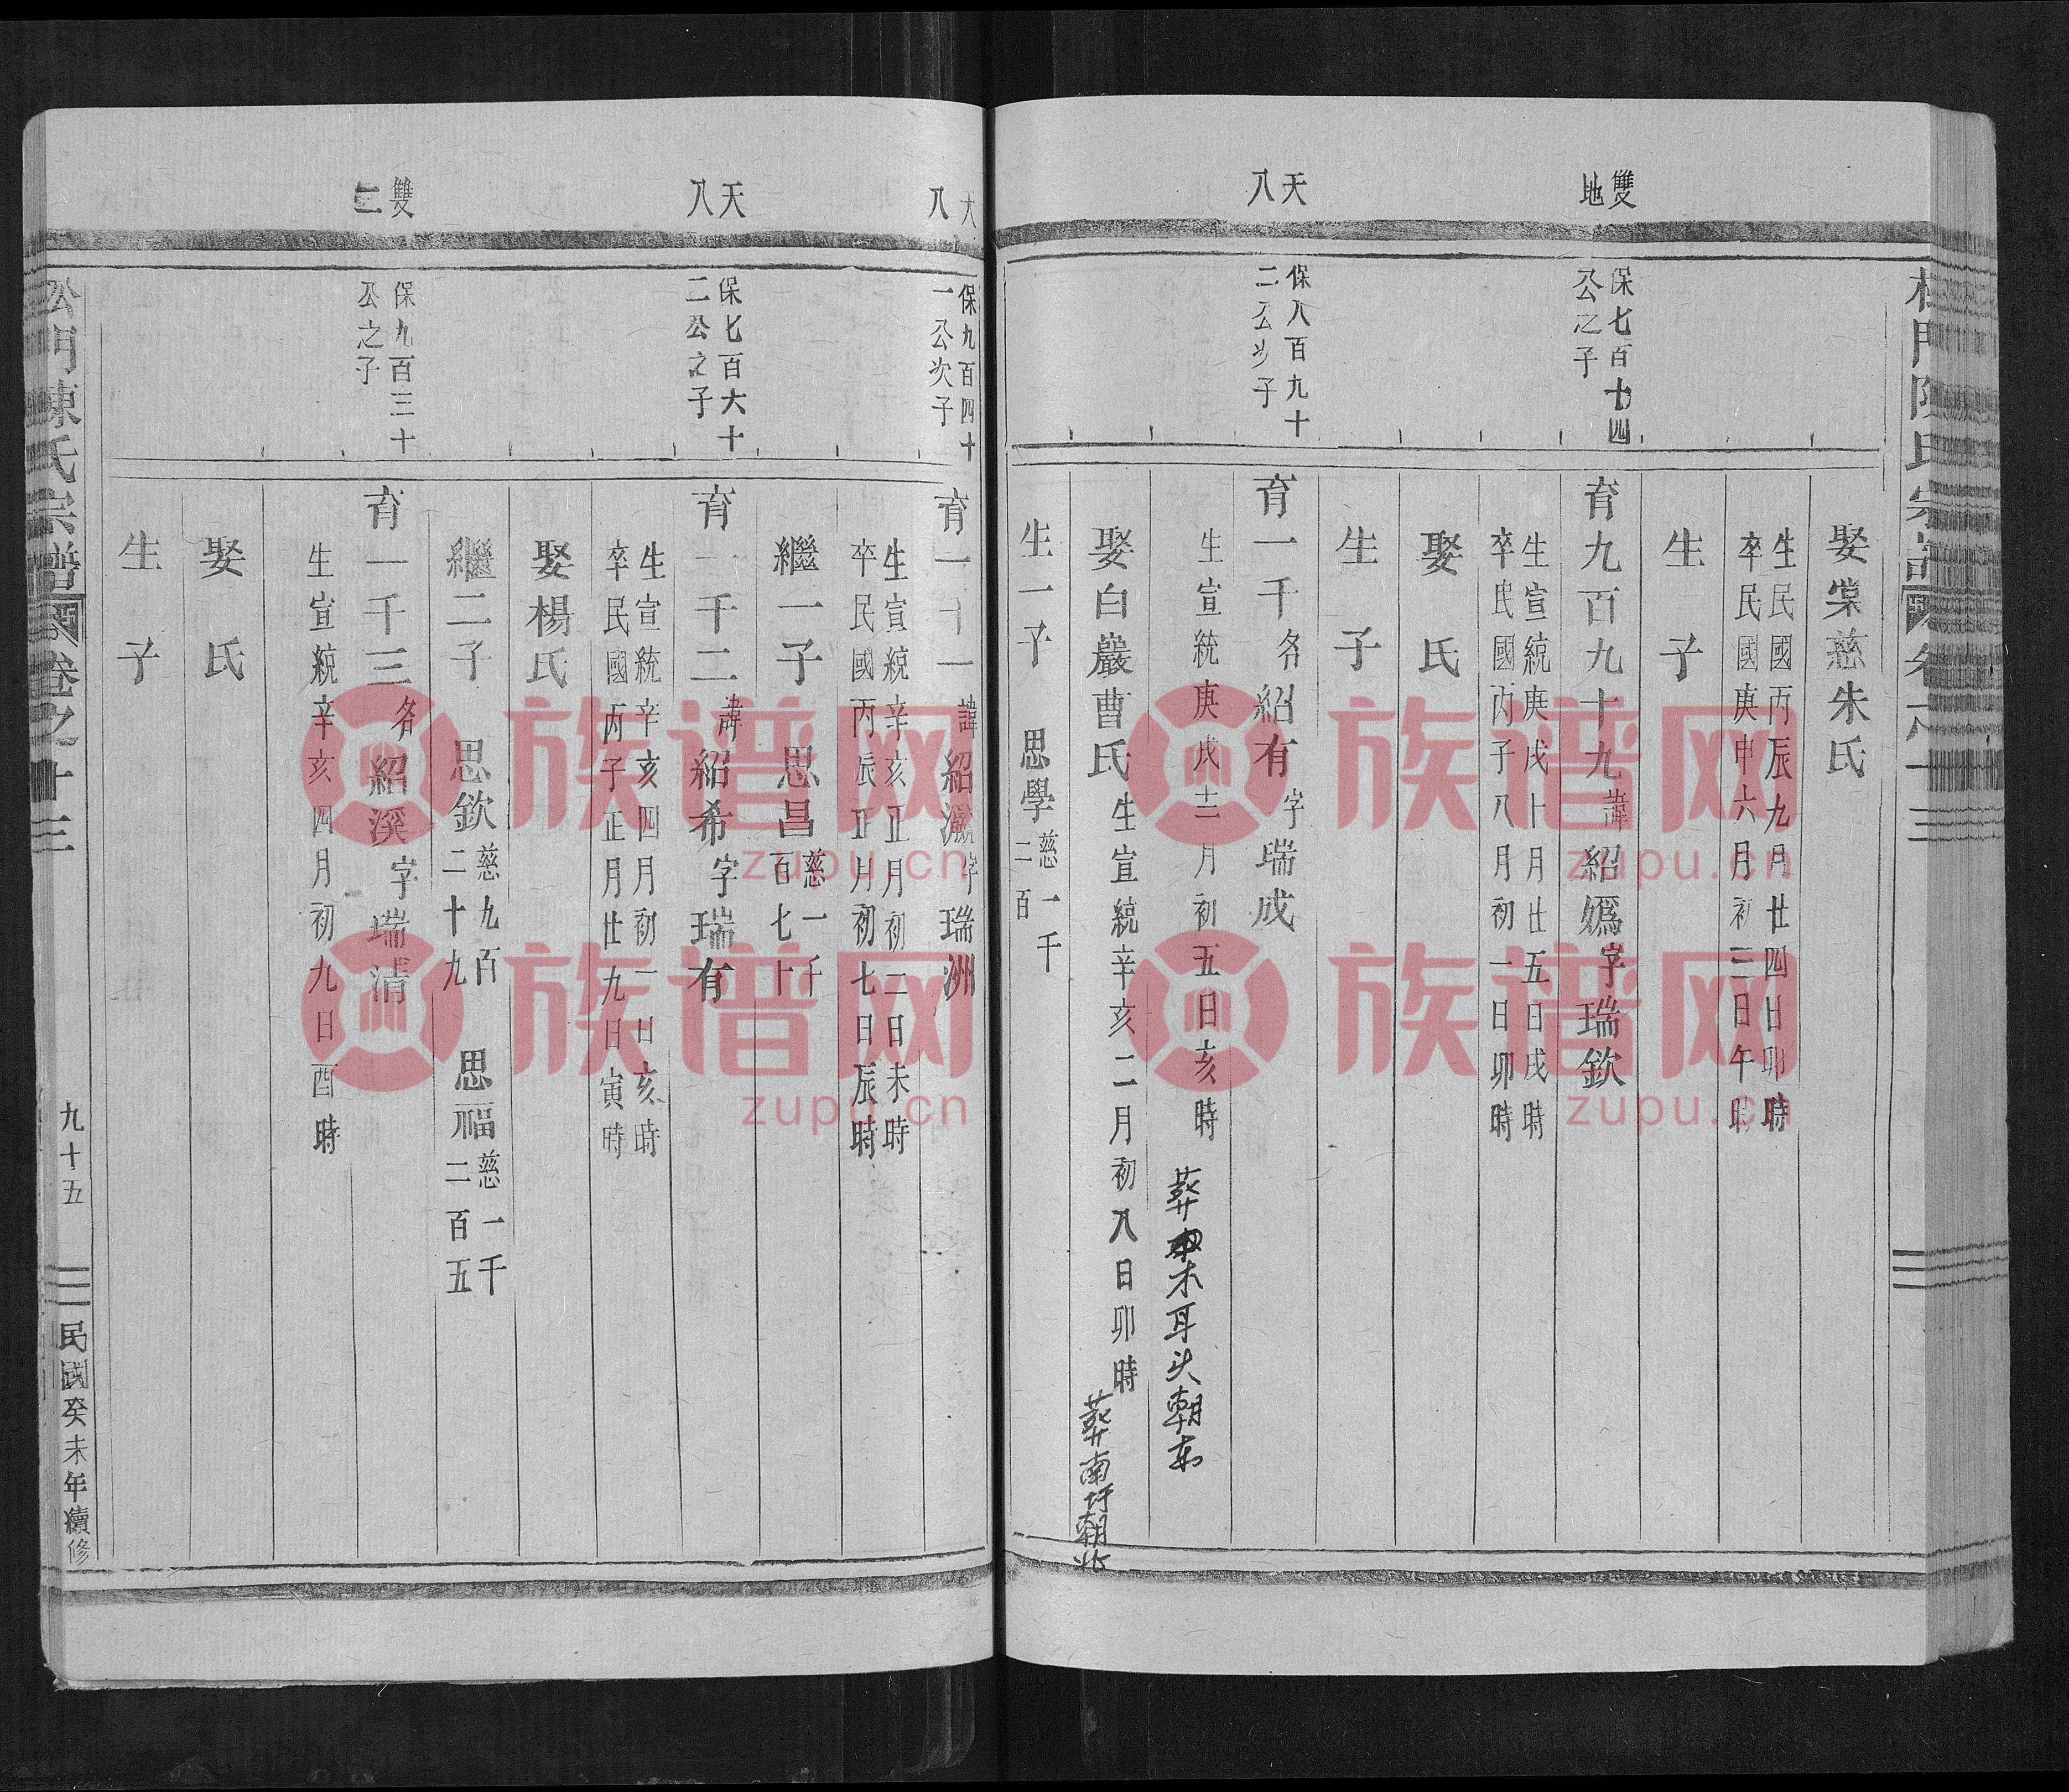 雙地
天八
保七百十四公之子
保八百九十二公次子
娶棠慈朱氏
生民國丙辰九月廿四日卯時
卒民國庚申六月初三日午時
生 子
育九百九十九諱紹嫣字瑞欽
生宣統庚戌十月廿五日戌時
卒民國丙子八月初一日卯時
娶 氏
生 子
育一千名紹有字瑞成
生宣統庚戌十二月初五日亥時 葬木耳头朝东
娶白巖曹氏生宣統辛亥二月初八日卯時 葬南圩朝北
生一子 思學慈一千二百
八
天八
雙二
保九百四十一公次子
保七百六十二公之子
保九百三十公之子
育一千一諱紹瀛字瑞洲
生宣統辛亥正月初二日未時
卒民國丙辰正月初七日辰時
繼一子 思昌慈一千百七十
育一千二諱紹希字瑞有
生宣統辛亥四月初一日亥時
卒民國丙子正月廿九日寅時
娶楊氏
繼二子 思欽慈九百二十九 思福慈一千二百五
育一千三名紹溪字瑞清
生宣統辛亥四月初九日酉時
娶 氏
生 子
門陳氏宗譜 卷之十三 九十五 民國癸未年續修
族谱网
zupu.cn
族谱网
zupu.cn
族谱网
zupu.cn
族谱网
zupu.cn